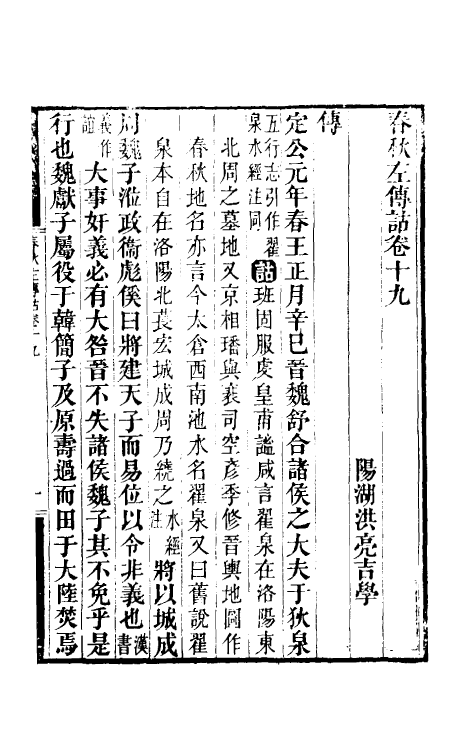 春秋左傳詁卷十九
陽湖洪亮吉學
傳
定公元年春王正月辛巳晉魏舒合諸侯之大夫于狄泉
五行志引作翟泉水經注同詁班固服虔皇甫謐咸言翟泉在洛陽東
北周之墓地又京相璠與裴司空彥季修晉輿地圖作
春秋地名亦言今太倉西南池水名翟泉又曰舊說翟
泉本自在洛陽北萇宏城成周乃繞之水經注將以城成
周魏子涖政衞彪傒曰將建天子而易位以令非義也漢書
義作誼大事奸義必有大咎晉不失諸侯魏子其不免乎是
行也魏獻子屬役于韓簡子及原壽過而田于大陸焚焉
春秋左傳詁卷十九
一